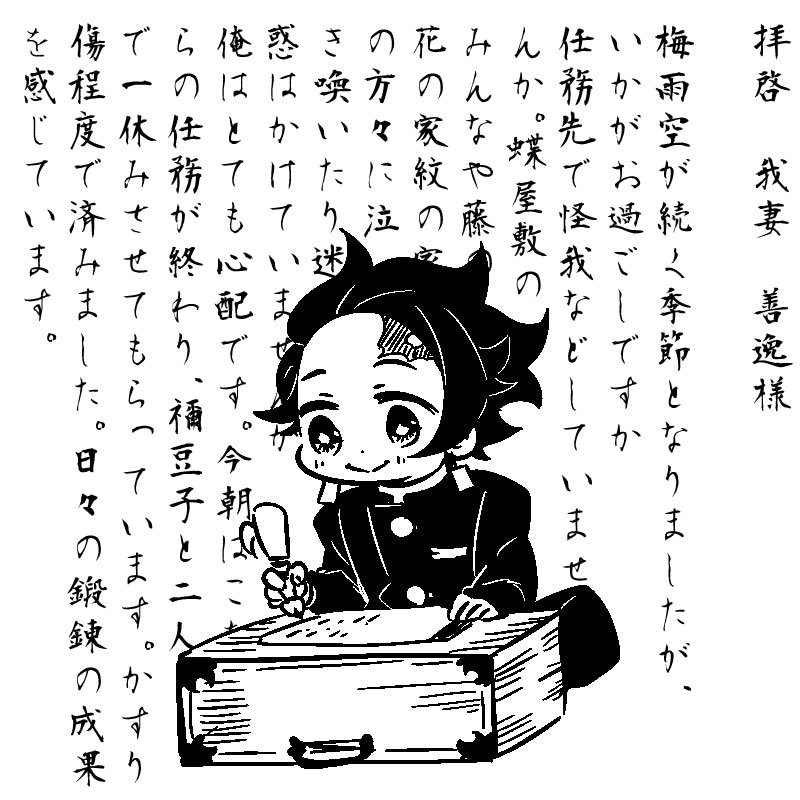 拝啓 我妻 善逸様
梅雨空が続く季節となりましたが、
いかがお過ごしですか
任務先で怪我などしていませ
んか。蝶屋敷の
みんなや藤の
花の家紋の家
の方々に泣
き喚いたり迷
惑はかけていませんか
俺はとても心配です。今朝はこち
らの任務が終わり、禰豆子と二人
で一休みさせてもらっています。かすり
傷程度で済みました。日々の鍛錬の成果
を感じています。